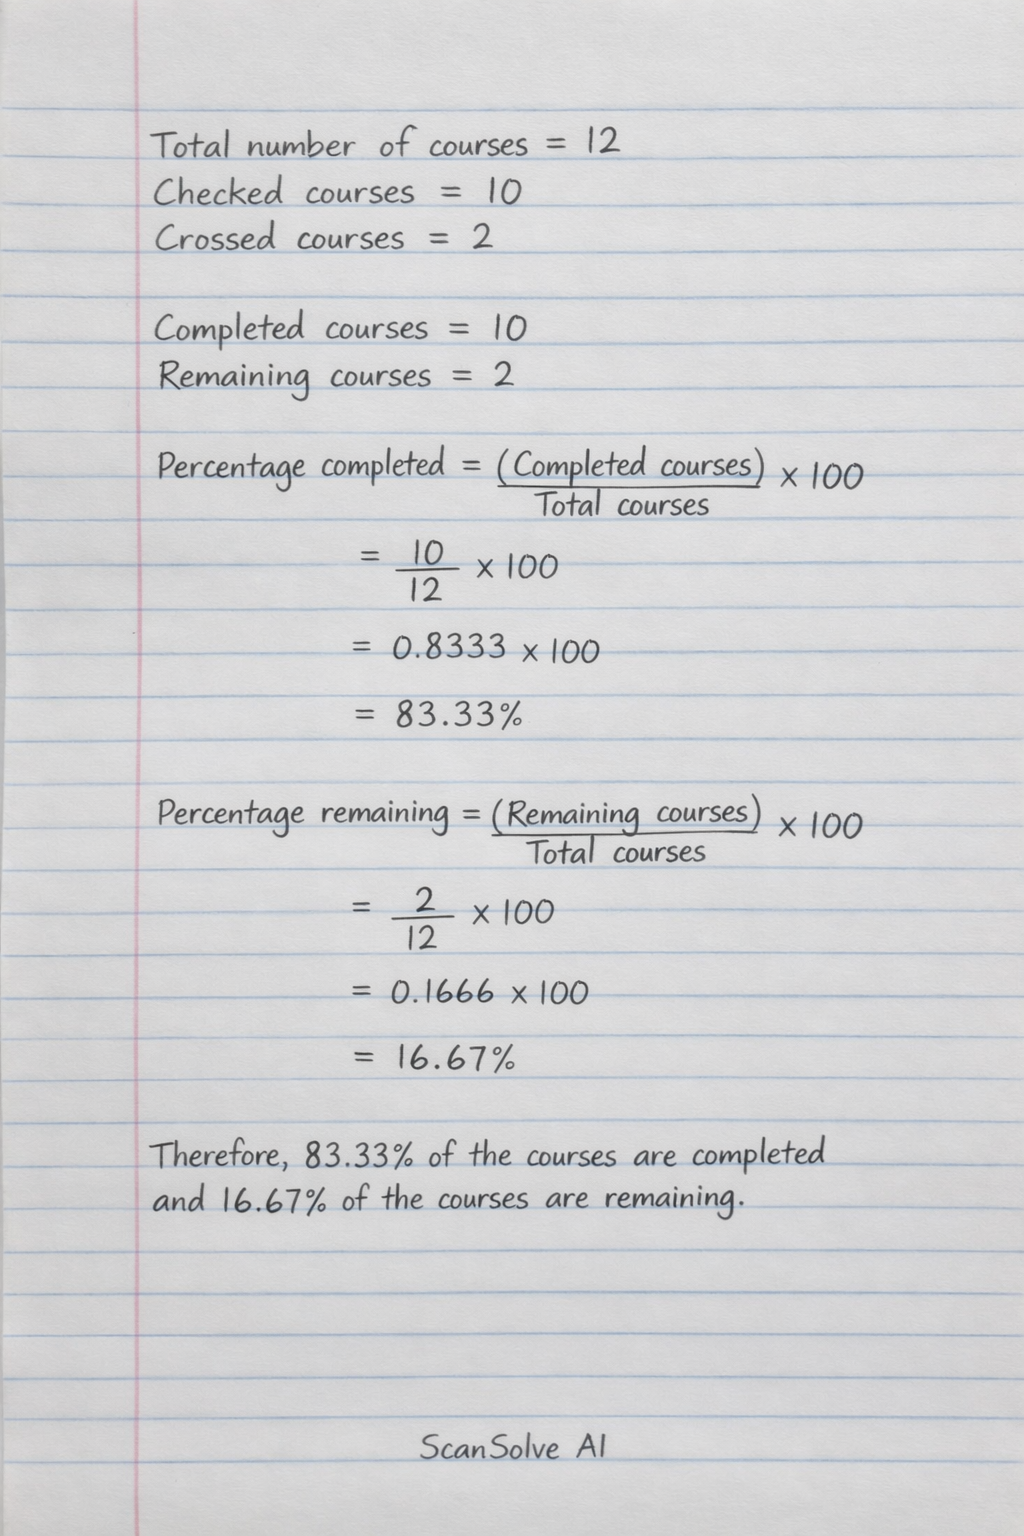 Total number of courses = 12
Checked courses = 10
Crossed courses = 2
Completed courses = 10
Remaining courses = 2
Percentage completed = (Completed courses) / Total courses × 100
= 10/12 × 100
= 0.8333 × 100
= 83.33%
Percentage remaining = (Remaining courses) / Total courses × 100
= 2/12 × 100
= 0.1666 × 100
= 16.67%
Therefore, 83.33% of the courses are completed
and 16.67% of the courses are remaining.
ScanSolve AI